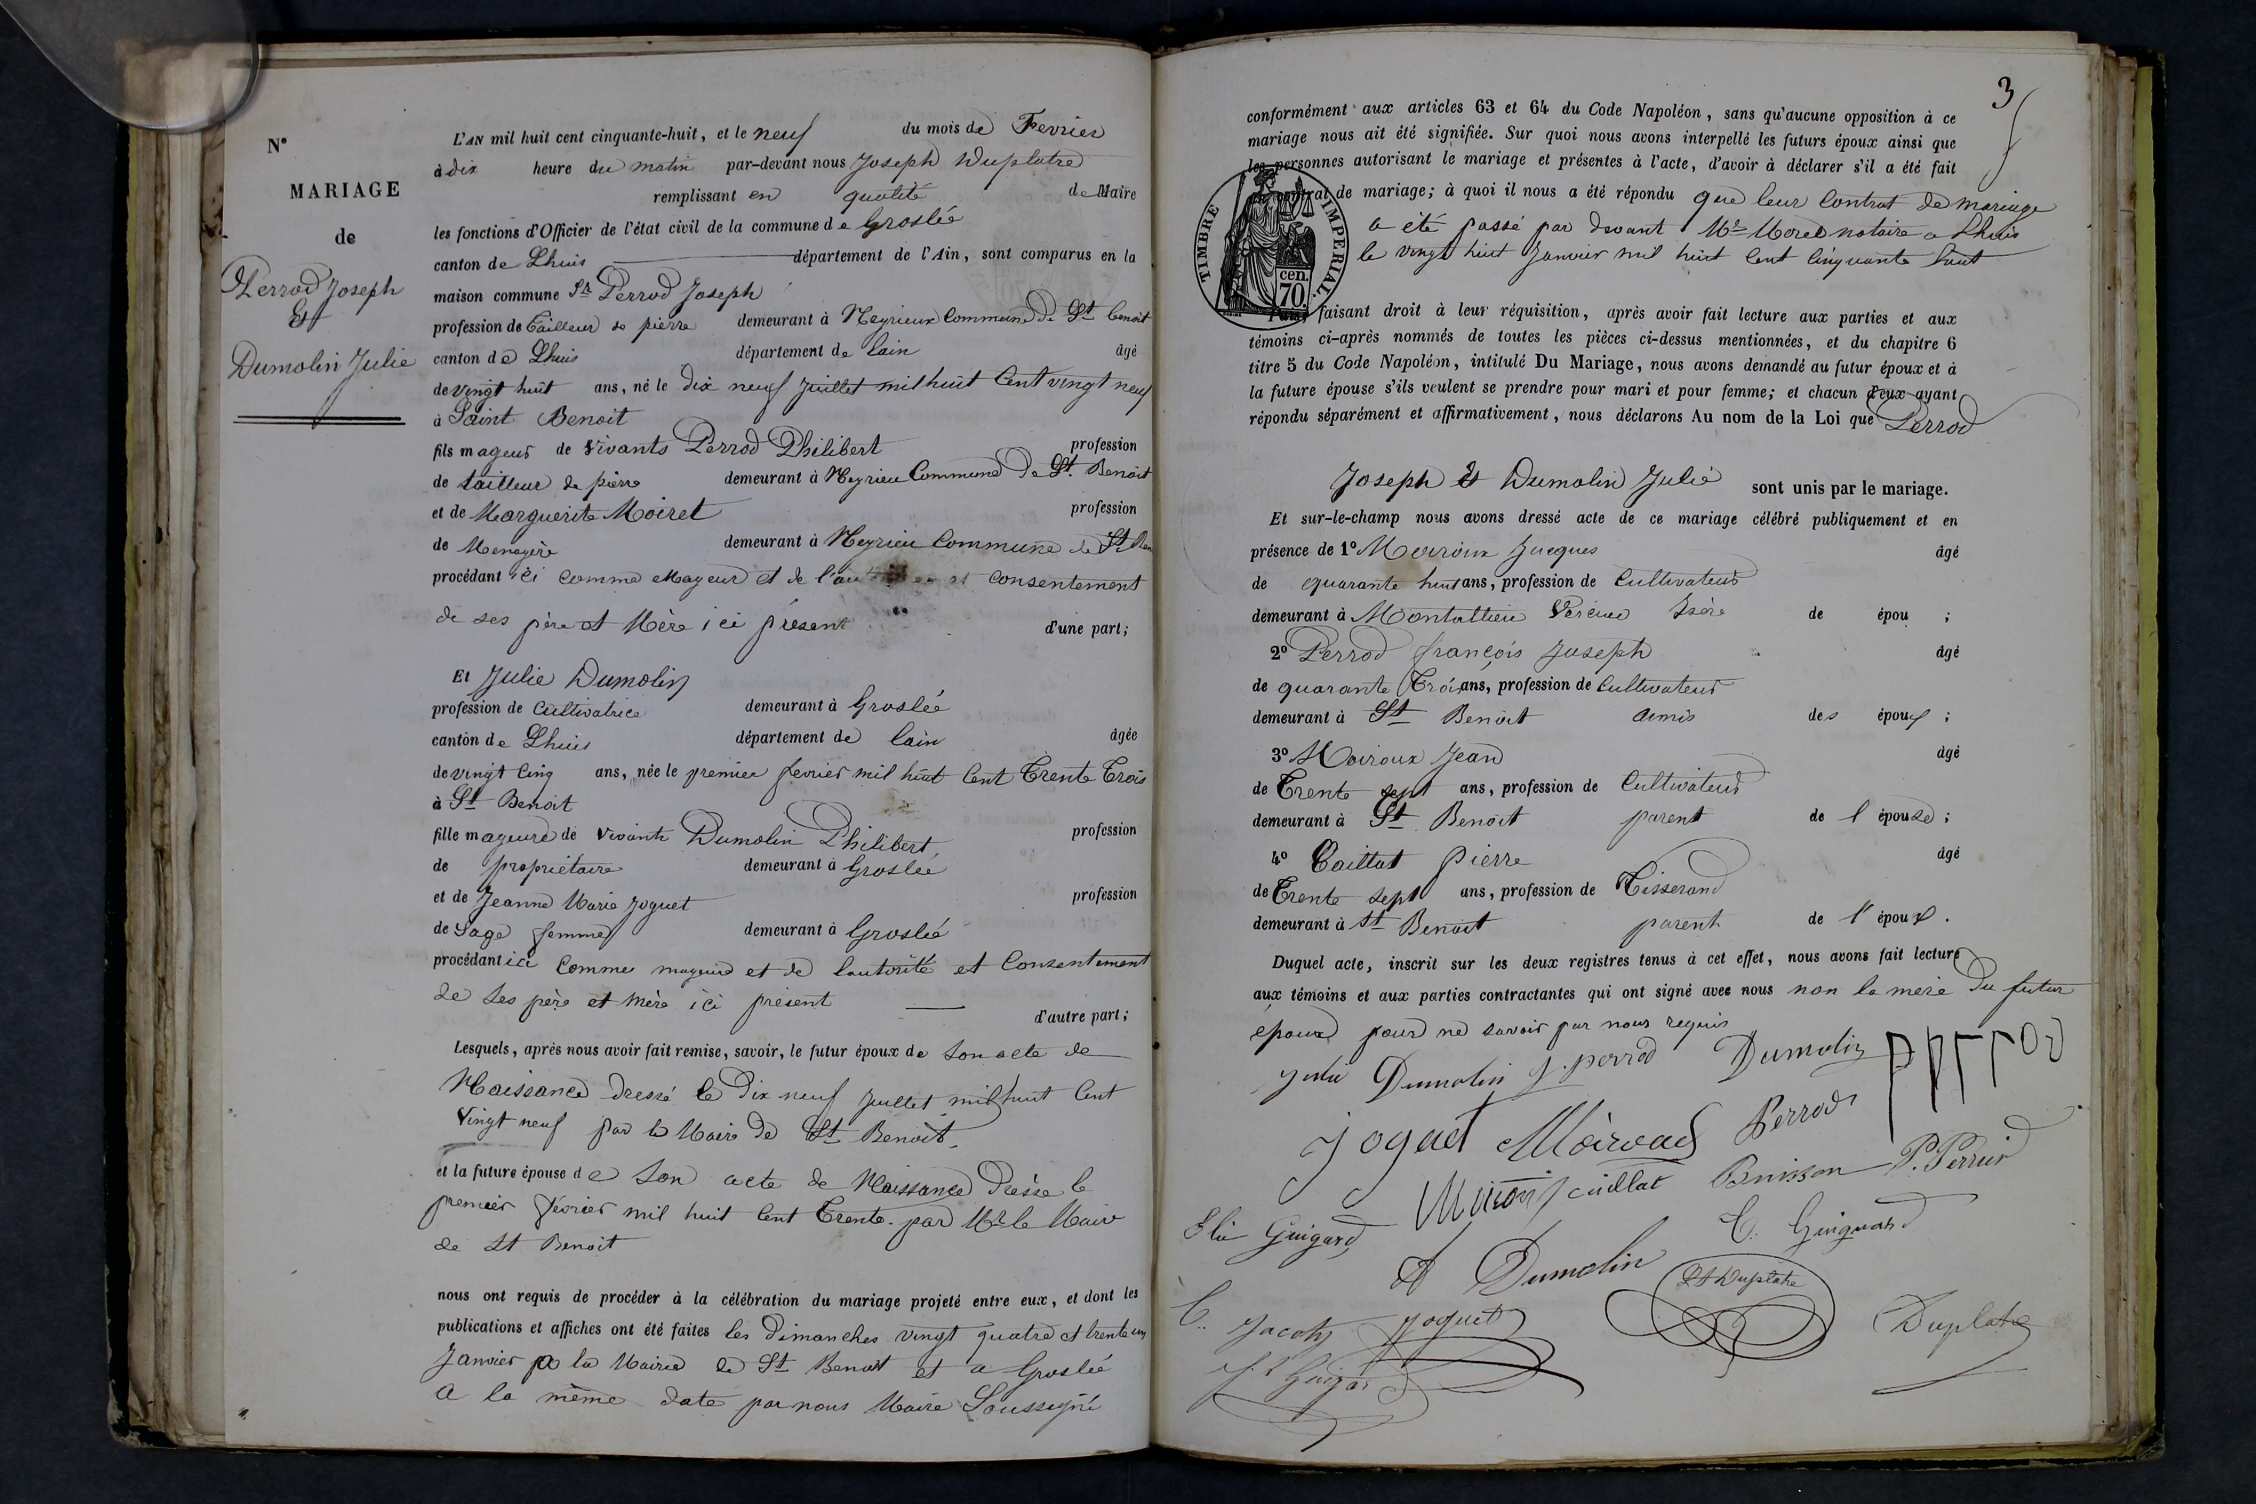 N°
MARIAGE
de
Perrod Joseph
Et
Dumolin Julie
L'AN mil huit cent cinquante-huit, et le neuf du mois de Fevrier
à dix heure du matin par-devant nous Joseph Duplatre
remplissant en qualité de Maire
les fonctions d'Officier de l'état civil de la commune de Groslée
canton de Lhuis département de l'Ain, sont comparus en la
maison commune Sr Perrod Joseph
profession de Tailleur de pierre demeurant à Neyrieux Commune de St Benoit
canton de Lhuis département de lain âgé
de vingt huit ans, né le dix neuf juillet mil huit Cent vingt neuf
à Saint Benoit
fils mageur de vivants Perrod Philibert profession
de tailleur de pierre demeurant à Neyrieu Commune de St. Benoit
et de Marguerite Moiret profession
de Menagère demeurant à Neyrieu Commune de St Ben
procédant ici comme Mayeur et de l'au et consentement
de ses père et Mère ici présent d'une part;
Et Julie Dumolin
profession de Cultivatrice demeurant à Groslée
canton de Lhuis département de lain âgée
de vingt Cinq ans, née le premier fevrier mil huit Cent Trente Trois
à St Benoit
fille mageure de vivants Dumolin Philibert profession
de propriétaire demeurant à Groslée
et de Jeanne Marie Joguet profession
de Sage femme demeurant à Groslée
procédant ici comme mageure et de lautorité et Consentement
de ses père et mère ici présent
d'autre part;
Lesquels, après nous avoir fait remise, savoir, le futur époux de son acte de
Naissance dressé le Dix neuf Juillet mil huit Cent
Vingt neuf par le Maire de St Benoit
et la future épouse de son acte de Naissance Dressé le
premier fevrier mil huit Cent Trente par Mr le Maire
de St Benoit
nous ont requis de procéder à la célébration du mariage projeté entre eux, et dont les
publications et affiches ont été faites les Dimanches vingt quatre et trente un
Janvier a la Mairie de St Benoit et a Groslée
A la même date par nous Maire Soussigné
3
conformément aux articles 63 et 64 du Code Napoléon, sans qu'aucune opposition à ce
mariage nous ait été signifiée. Sur quoi nous avons interpellé les futurs époux ainsi que
les personnes autorisant le mariage et présentes à l'acte, d'avoir à déclarer s'il a été fait
contrat de mariage; à quoi il nous a été répondu que leur Contrat de mariage
a été passé par devant Me Morel notaire a Lhuis
le vingt huit Janvier mil huit Cent Cinquante huit
TIMBRE IMPERIAL.
cen.
70.
Puis, faisant droit à leur réquisition, après avoir fait lecture aux parties et aux
témoins ci-après nommés de toutes les pièces ci-dessus mentionnées, et du chapitre 6
titre 5 du Code Napoléon, intitulé Du Mariage, nous avons demandé au futur époux et à
la future épouse s'ils veulent se prendre pour mari et pour femme; et chacun d'eux ayant
répondu séparément et affirmativement, nous déclarons Au nom de la Loi que Perrod
Joseph Et Dumolin Julie sont unis par le mariage.
Et sur-le-champ nous avons dressé acte de ce mariage célébré publiquement et en
présence de 1° Moiroux Jacques âgé
de quarante huit ans, profession de Cultivateur
demeurant à Montallieu Vercieu Isère de épou ;
2° Perrod françois Joseph âgé
de quarante Trois ans, profession de Cultivateur
demeurant à St Benoit amis des époux ;
3° Moiroux Jean âgé
de Trente sept ans, profession de Cultivateur
demeurant à St Benoit parent de l épouse ;
4° Caillat Pierre âgé
de Trente sept ans, profession de Tisserand
demeurant à St Benoit parent de l' époux .
Duquel acte, inscrit sur les deux registres tenus à cet effet, nous avons fait lecture
aux témoins et aux parties contractantes qui ont signé avec nous non la mère du futur
époux pour ne savoir par nous requis
Julie Dumolin J. perrod Dumolin perrod
Joguet Moiroud Perrod
caillat Buisson P. Perrier
Elie Guigard C. Guignard
Dumolin
Duplatre
C. Jacob Joguet Duplatre